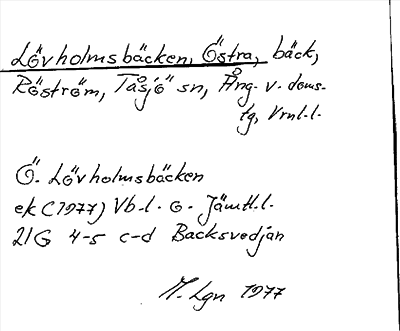 Lövholmsbäcken, Östra, bäck,
Röström, Tåsjö sn, Ång. v. doms-
lg, Vrnl.l.
Ö. Lövholmsbäcken
ek (1977) Vb.l. o. Jämtl.l.
21G 4-5 c-d Backsvedjan
M. Lgn 1977